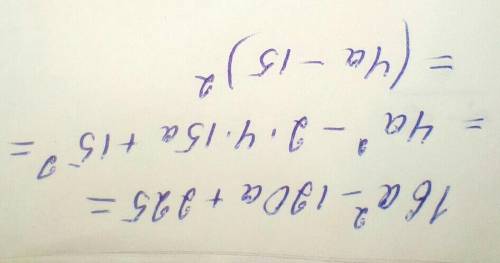 16a² - 120a + 225 =
= 4a² - 2·4·15a + 15² =
= (4a - 15)²